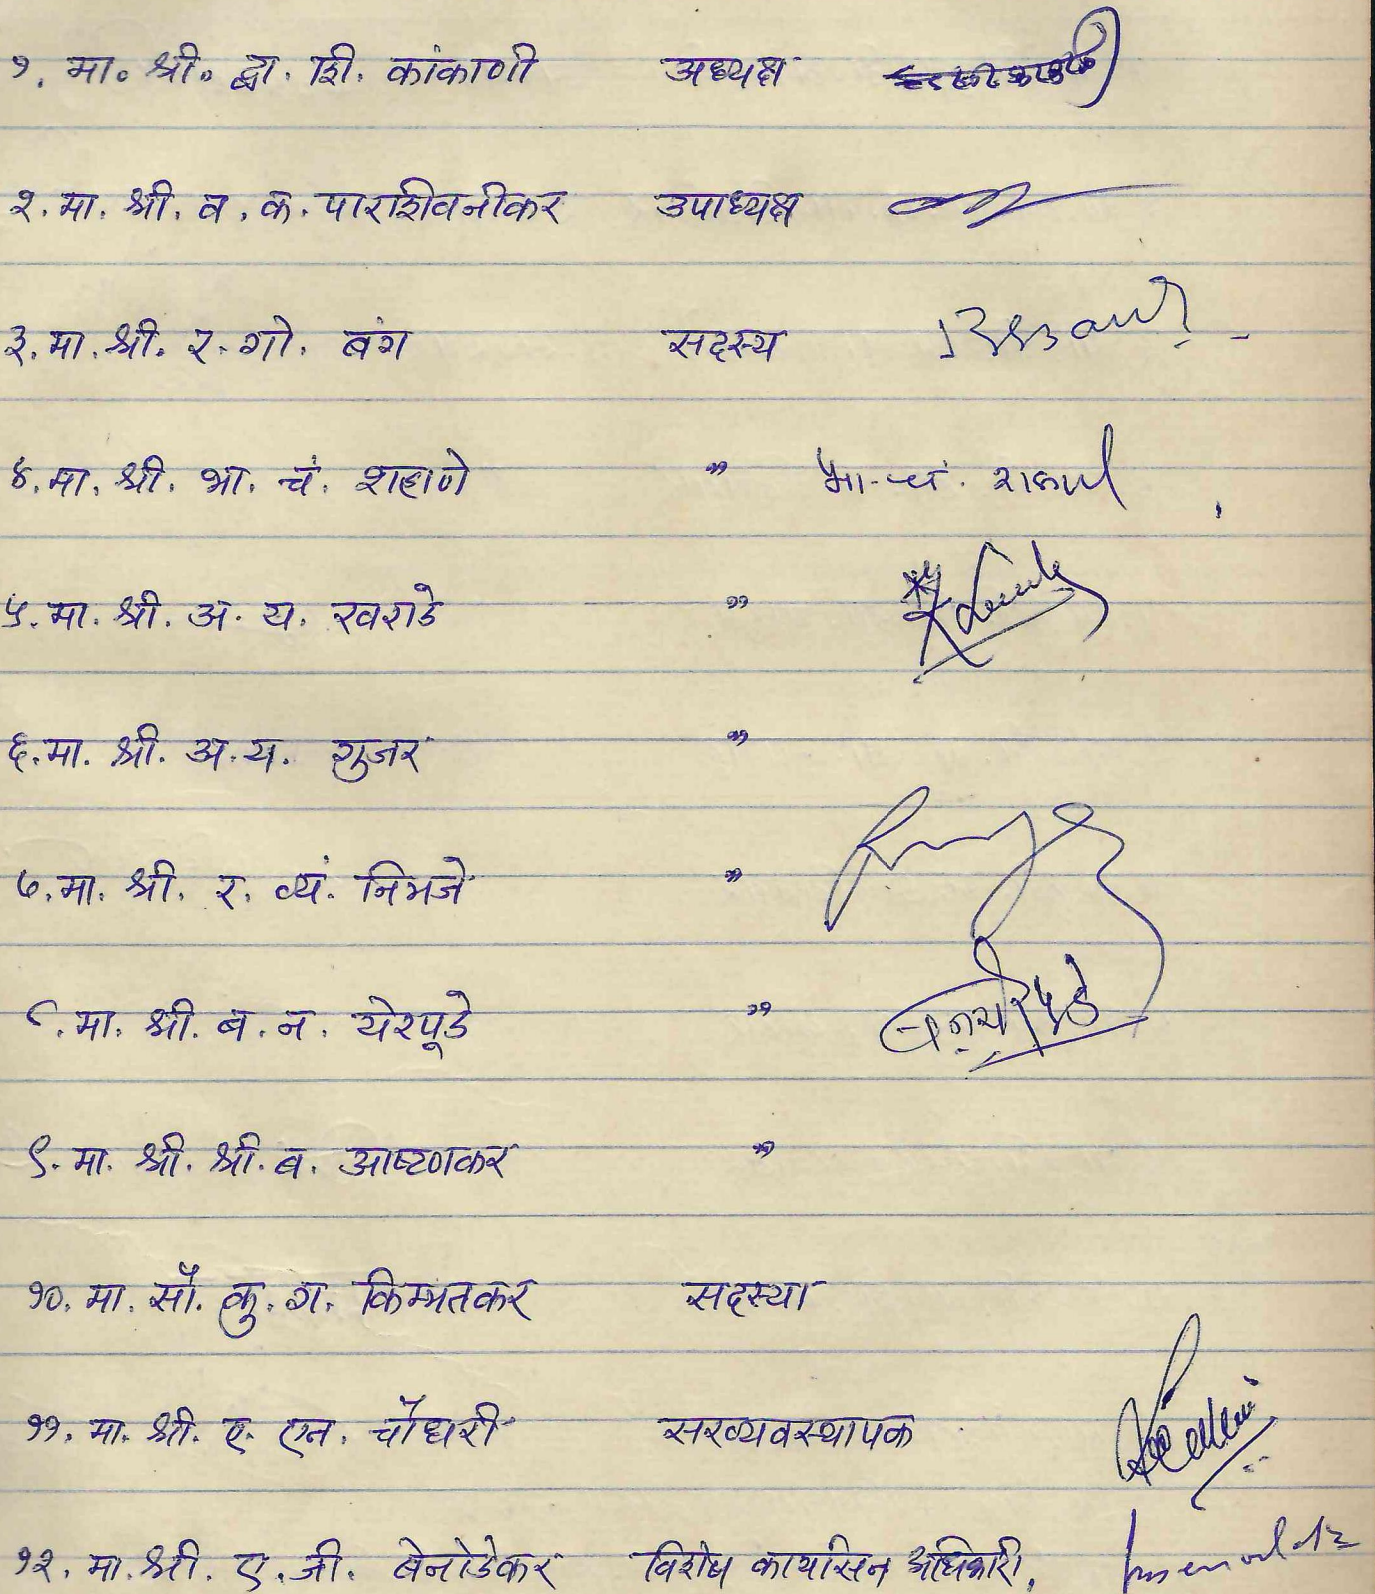 १. मा. श्री. द्वा. शि. कांकाणी अध्यक्ष
२. मा. श्री. व. क. पारशिवनीकर उपाध्यक्ष
३. मा. श्री. र. गो. बंग सदस्य
४. मा. श्री. भा. चं. शहाणे " भा. चं. शहाणे
५. मा. श्री. अ. य. खराडे "
६. मा. श्री. अ. य. गुजर "
७. मा. श्री. र. व्यं. निमजे "
८. मा. श्री. ब. न. येरपूडे "
९. मा. श्री. श्री. ब. आष्टणकर "
१०. मा. सौ. कु. ग. किम्मतकर सदस्या
११. मा. श्री. ए. एन. चौधरी सरव्यवस्थापक
१२. मा. श्री. ए. जी. बेनोडेकर विशेष कार्यासन अधिकारी,